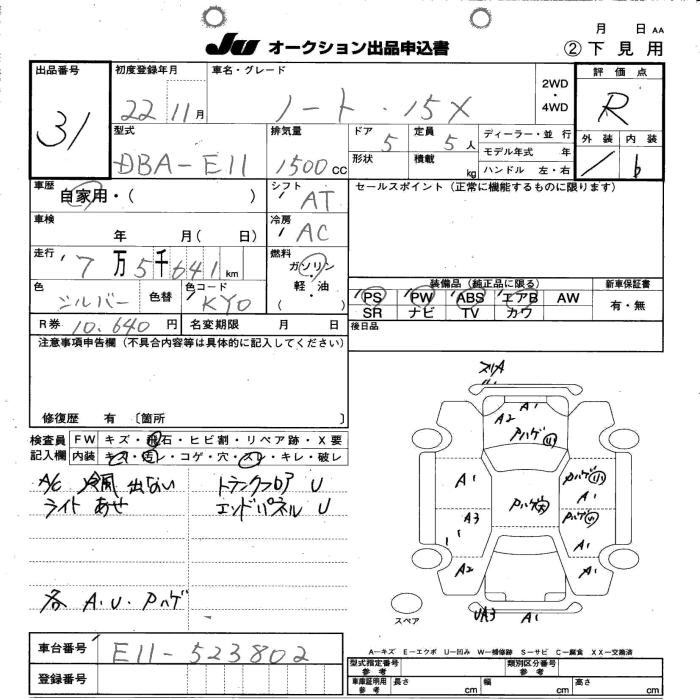 Ju オークション出品申込書
月 日 AA
② 下見用
出品番号
31
初度登録年月
22 11月
車名・グレード
ノート・15X
2WD
・
4WD
評価点
R
外装 内装
1 b
型式
DBA-E11
排気量
1500 cc
ドア 5
定員 5 人
形状
積載 kg
ディーラー・並行
モデル年式 年
ハンドル 左・右
車歴
自家用・( )
シフト
AT
セールスポイント (正常に機能するものに限ります)
車検
年 月( 日)
冷房
AC
走行
7万5千641 km
燃料
ガソリン
・
軽・油
( )
色
シルバー
色替
色コード
KY0
装備品 (純正品に限る)
新車保証書
PS PW ABS エアB AW
SR ナビ TV カワ
有・無
R券 10,640円
名変期限 月 日
後日品
注意事項申告欄 (不具合内容等は具体的に記入してください)
修復歴 有 〔箇所 〕
検査員
記入欄
FW キズ・飛石・ヒビ割・リペア跡・X要
内装 キズ・汚レ・コゲ・穴・スレ・キレ・破レ
A/C 冷風 出ない
ライト あせ
トランクフロア U
エンドパネル U
各 A.U.Pハゲ
スリA
A1
A2
Pハゲ(小)
A1
Pハゲ(小)
A1
Pハゲ大
A3
Pハゲ(小)
A1
A2
A1
UA3 A1
スペア
A－キズ E－エクボ U－凹み W－補修跡 S－サビ C－腐食 XX－交換済
車台番号
E11-523802
登録番号
型式指定番号
参考
類別区分番号
参考
車庫証明用
参考
長さ cm
幅 cm
高さ cm